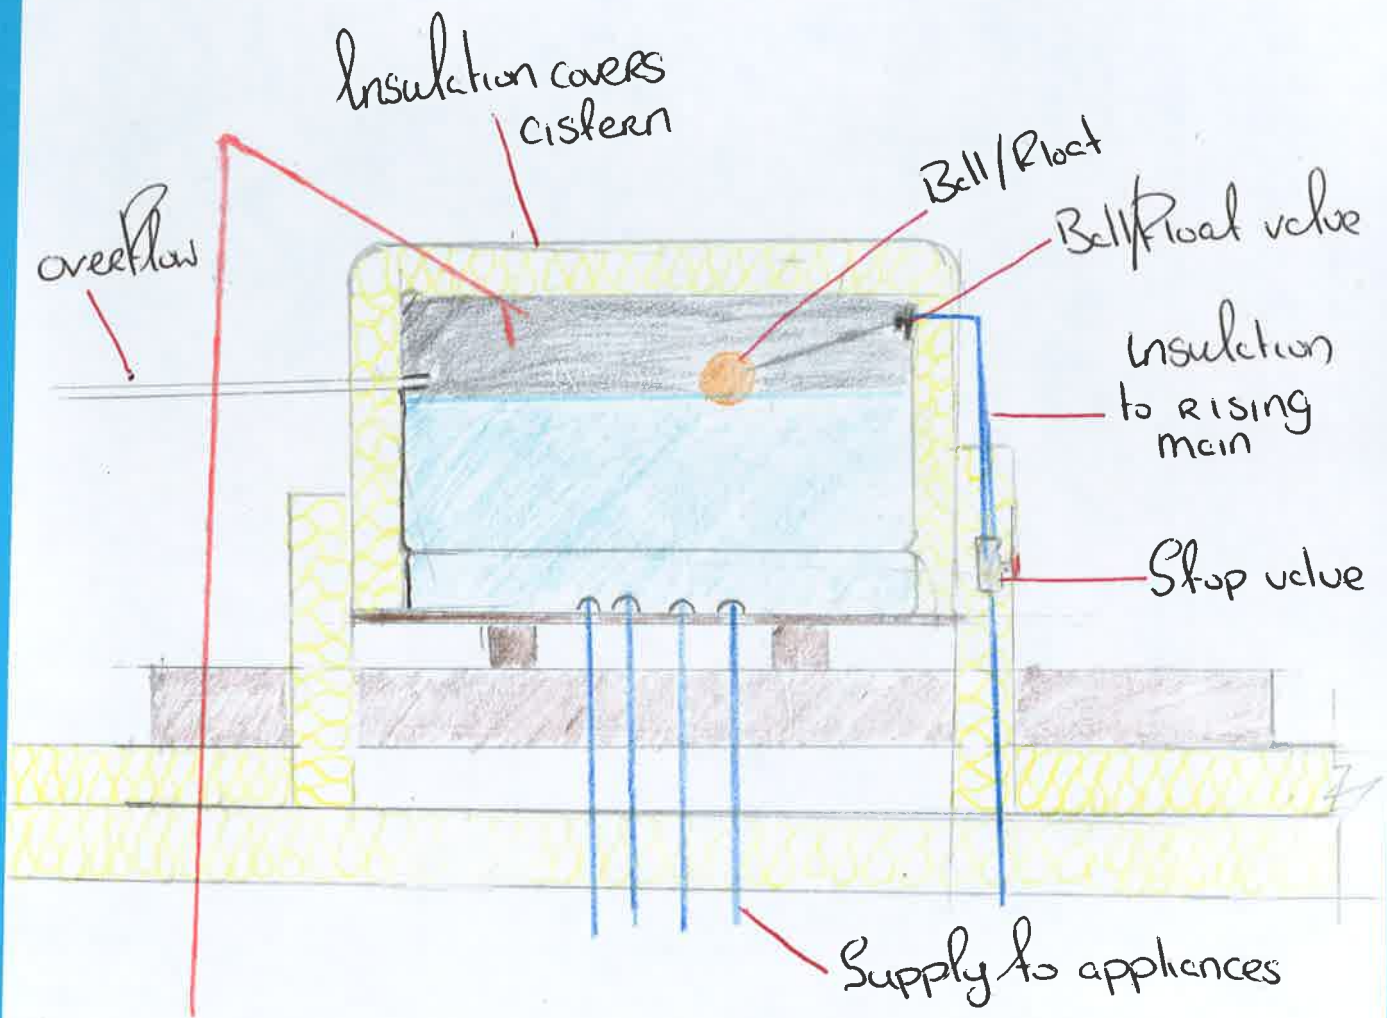 Insulation covers
cistern
Ball/Float
Ball/Float valve
overflow
insulation
to rising
main
Stop valve
Supply to appliances